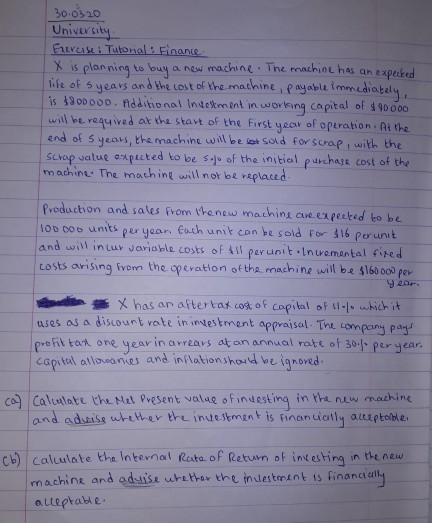 30.03.20
University.
Exercise: Tutorial: Finance.
X is planning to buy a new machine. The machine has an expected
life of 5 years and the cost of the machine, payable immediately,
is $800000. Additional Investment in working capital of $90000
will be required at the start of the first year of operation. At the
end of 5 years, the machine will be sold for scrap, with the
scrap value expected to be 5% of the initial purchase cost of the
machine. The machine will not be replaced.
Production and sales from the new machine are expected to be
100 000 units per year. Each unit can be sold for $16 per unit
and will incur variable costs of $11 per unit. Incremental fixed
costs arising from the operation of the machine will be $160000 per
year.
X has an after tax cost of capital of 11% which it
uses as a discount rate in investment appraisal. The company pays
profit tax one year in arrears at an annual rate of 30% per year.
Capital allowances and inflation should be ignored.
(a) Calculate the Net Present value of investing in the new machine
and advise whether the investment is financially acceptable.
(b) Calculate the Internal Rate of Return of investing in the new
machine and advise whether the investment is financially
acceptable.